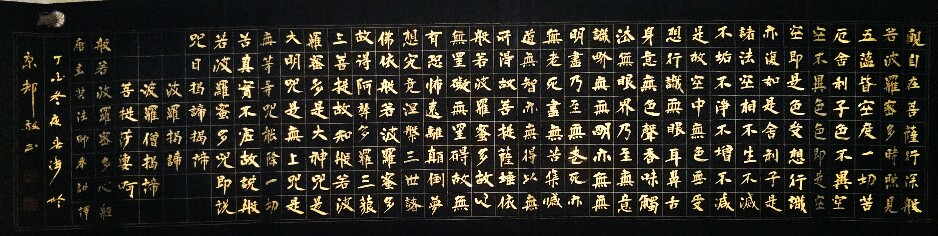 觀自在菩薩行深般
若波羅蜜多時照見
五蘊皆空度一切苦
厄舍利子色不異空
空不異色色即是空
空即是色受想行識
亦復如是舍利子是
諸法空相不生不滅
不垢不淨不增不減
是故空中無色無受
想行識無眼耳鼻舌
身意無色聲香味觸
法無眼界乃至無意
識界無無明亦無無
明盡乃至無老死亦
無老死盡無苦集滅
道無智亦無得以無
所得故菩提薩埵依
般若波羅蜜多故心
無罣礙無罣礙故無
有恐怖遠離顛倒夢
想究竟涅槃三世諸
佛依般若波羅蜜多
故得阿耨多羅三藐
三菩提故知般若波
羅蜜多是大神咒是
大明咒是無上咒是
無等等咒能除一切
苦真實不虛故說般
若波羅蜜多咒即說
咒曰揭諦揭諦
波羅揭諦
波羅僧揭諦
菩提薩婆訶
般若波羅蜜多心經
唐玄奘法師奉詔譯
丁亥冬夜
京都敬